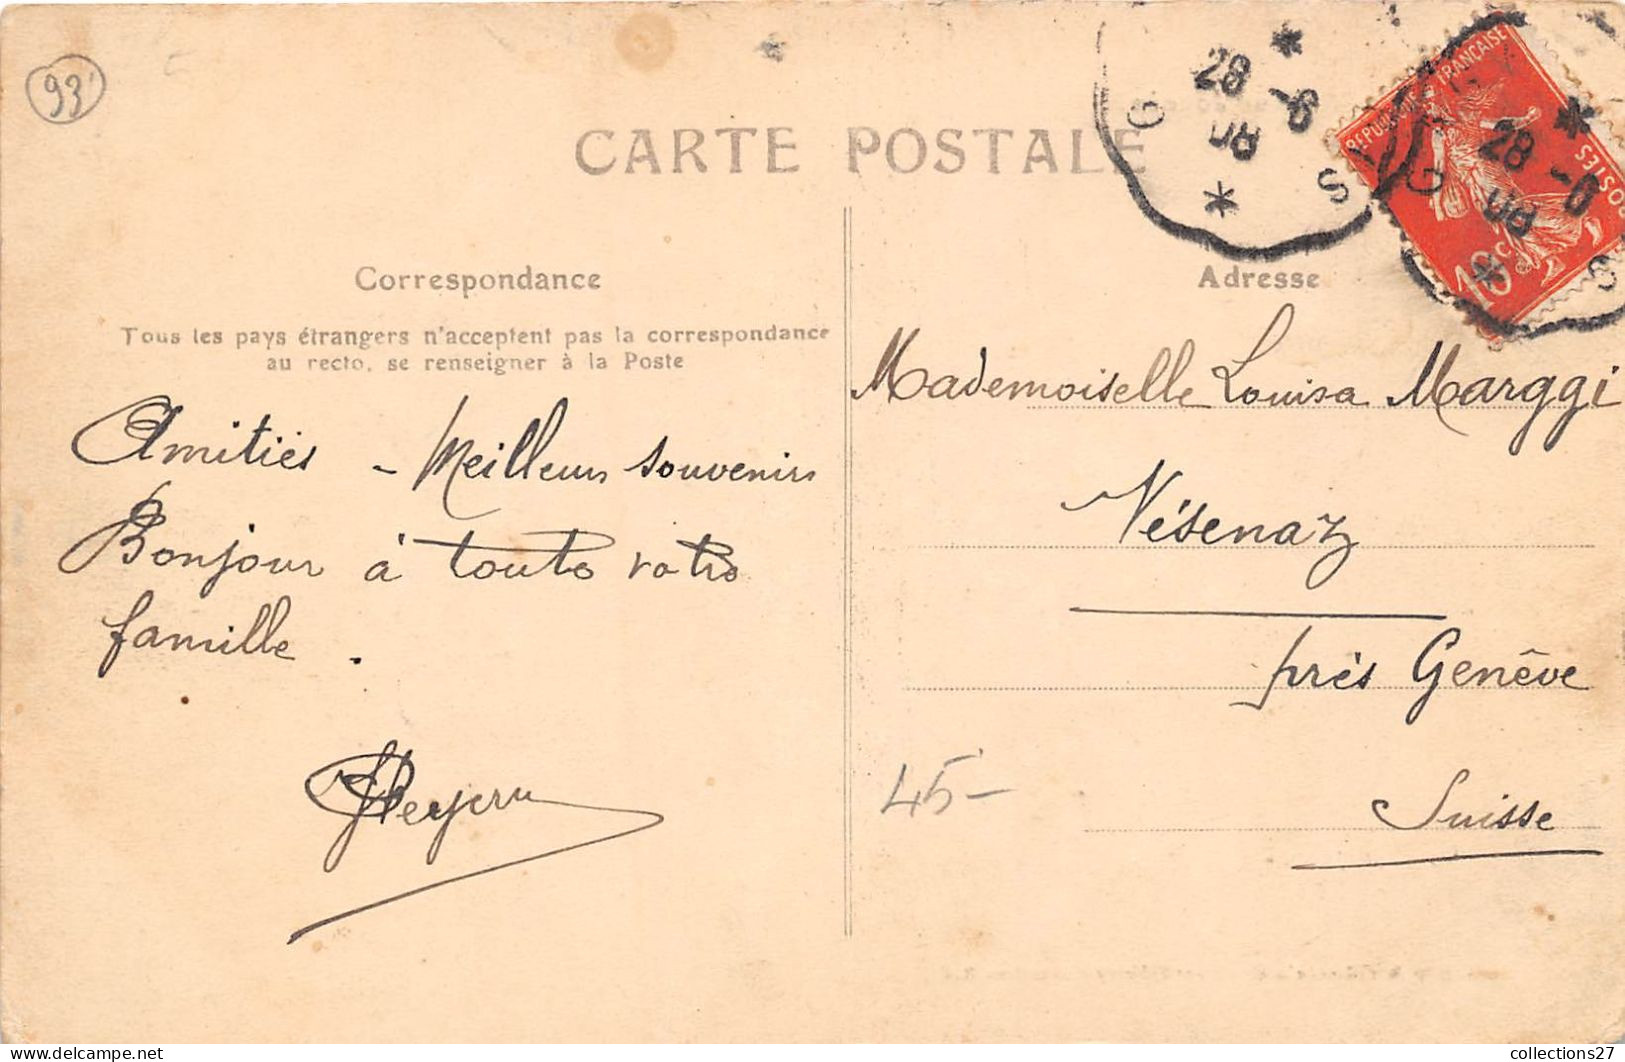 93
CARTE POSTALE
28 -6
08
G
S
REPUBLIQUE FRANÇAISE
POSTES
10c
28
08
G
Correspondance
Adresse
Tous les pays étrangers n'acceptent pas la correspondance
au recto, se renseigner à la Poste
Mademoiselle Louisa Marggi
Amitiés - Meilleurs souvenirs
Vésenaz
Bonjour à toute votre
famille.
près Genêve
45-
Suisse
collections27